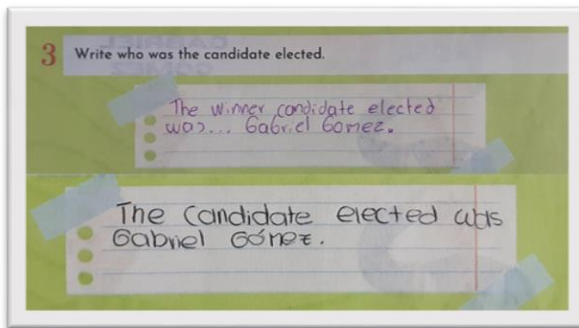 3 Write who was the candidate elected.
The winner candidate elected
was... Gabriel Gomez.
The Candidate elected was
Gabriel Gómez.